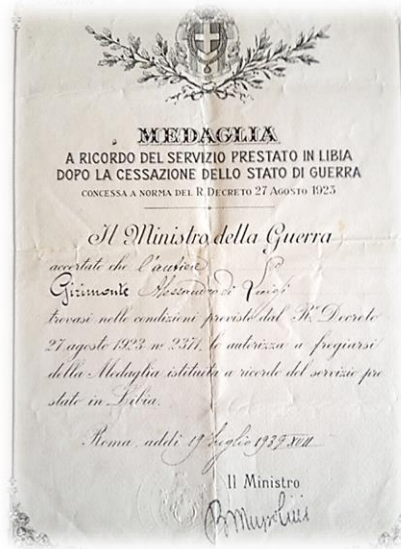 MEDAGLIA
A RICORDO DEL SERVIZIO PRESTATO IN LIBIA
DOPO LA CESSAZIONE DELLO STATO DI GUERRA
CONCESSA A NORMA DEL R. DECRETO 27 AGOSTO 1923
Il Ministro della Guerra
accertato che l'autiere
Girimonte Alessandro di Luigi
trovasi nelle condizioni previste dal R.º Decreto
27 agosto 1923 nº 2371, lo autorizza a fregiarsi
della Medaglia istituita a ricordo del servizio pre
stato in Libia.
Roma, addì 19 luglio 1939 XVII
Il Ministro
B Mussolini